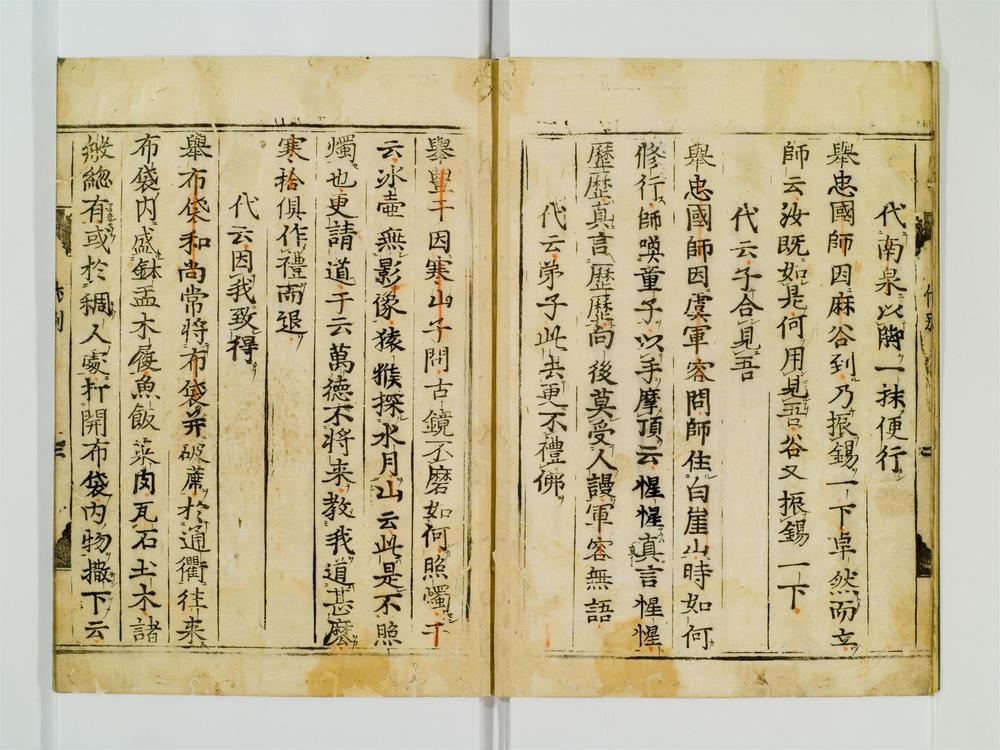 代南泉以脚一抹便行
舉忠國師因麻谷到乃振錫一下卓然而立
師云汝既如是何用見吾谷又振錫一下
代云子合見吾
舉忠國師因虞軍容問師住白崖山時如何
修行師喚童子以手摩頂云惺惺真言惺惺
歷歷真言歷歷向後莫受人謾軍容無語
代云弟子此去更不禮佛
舉豊干因寒山子問古鏡不磨如何照燭干
云冰壺無影像猿猴探水月山云此是不照
燭也更請道干云萬德不將来教我道甚麽
寒拾俱作禮而退
代云因我致得
舉布袋和尚常將布袋并破席於通衢往来
布袋內盛鉢盂木屐魚飯菜肉瓦石土木諸
般總有或於稠人處打開布袋內物撒下云